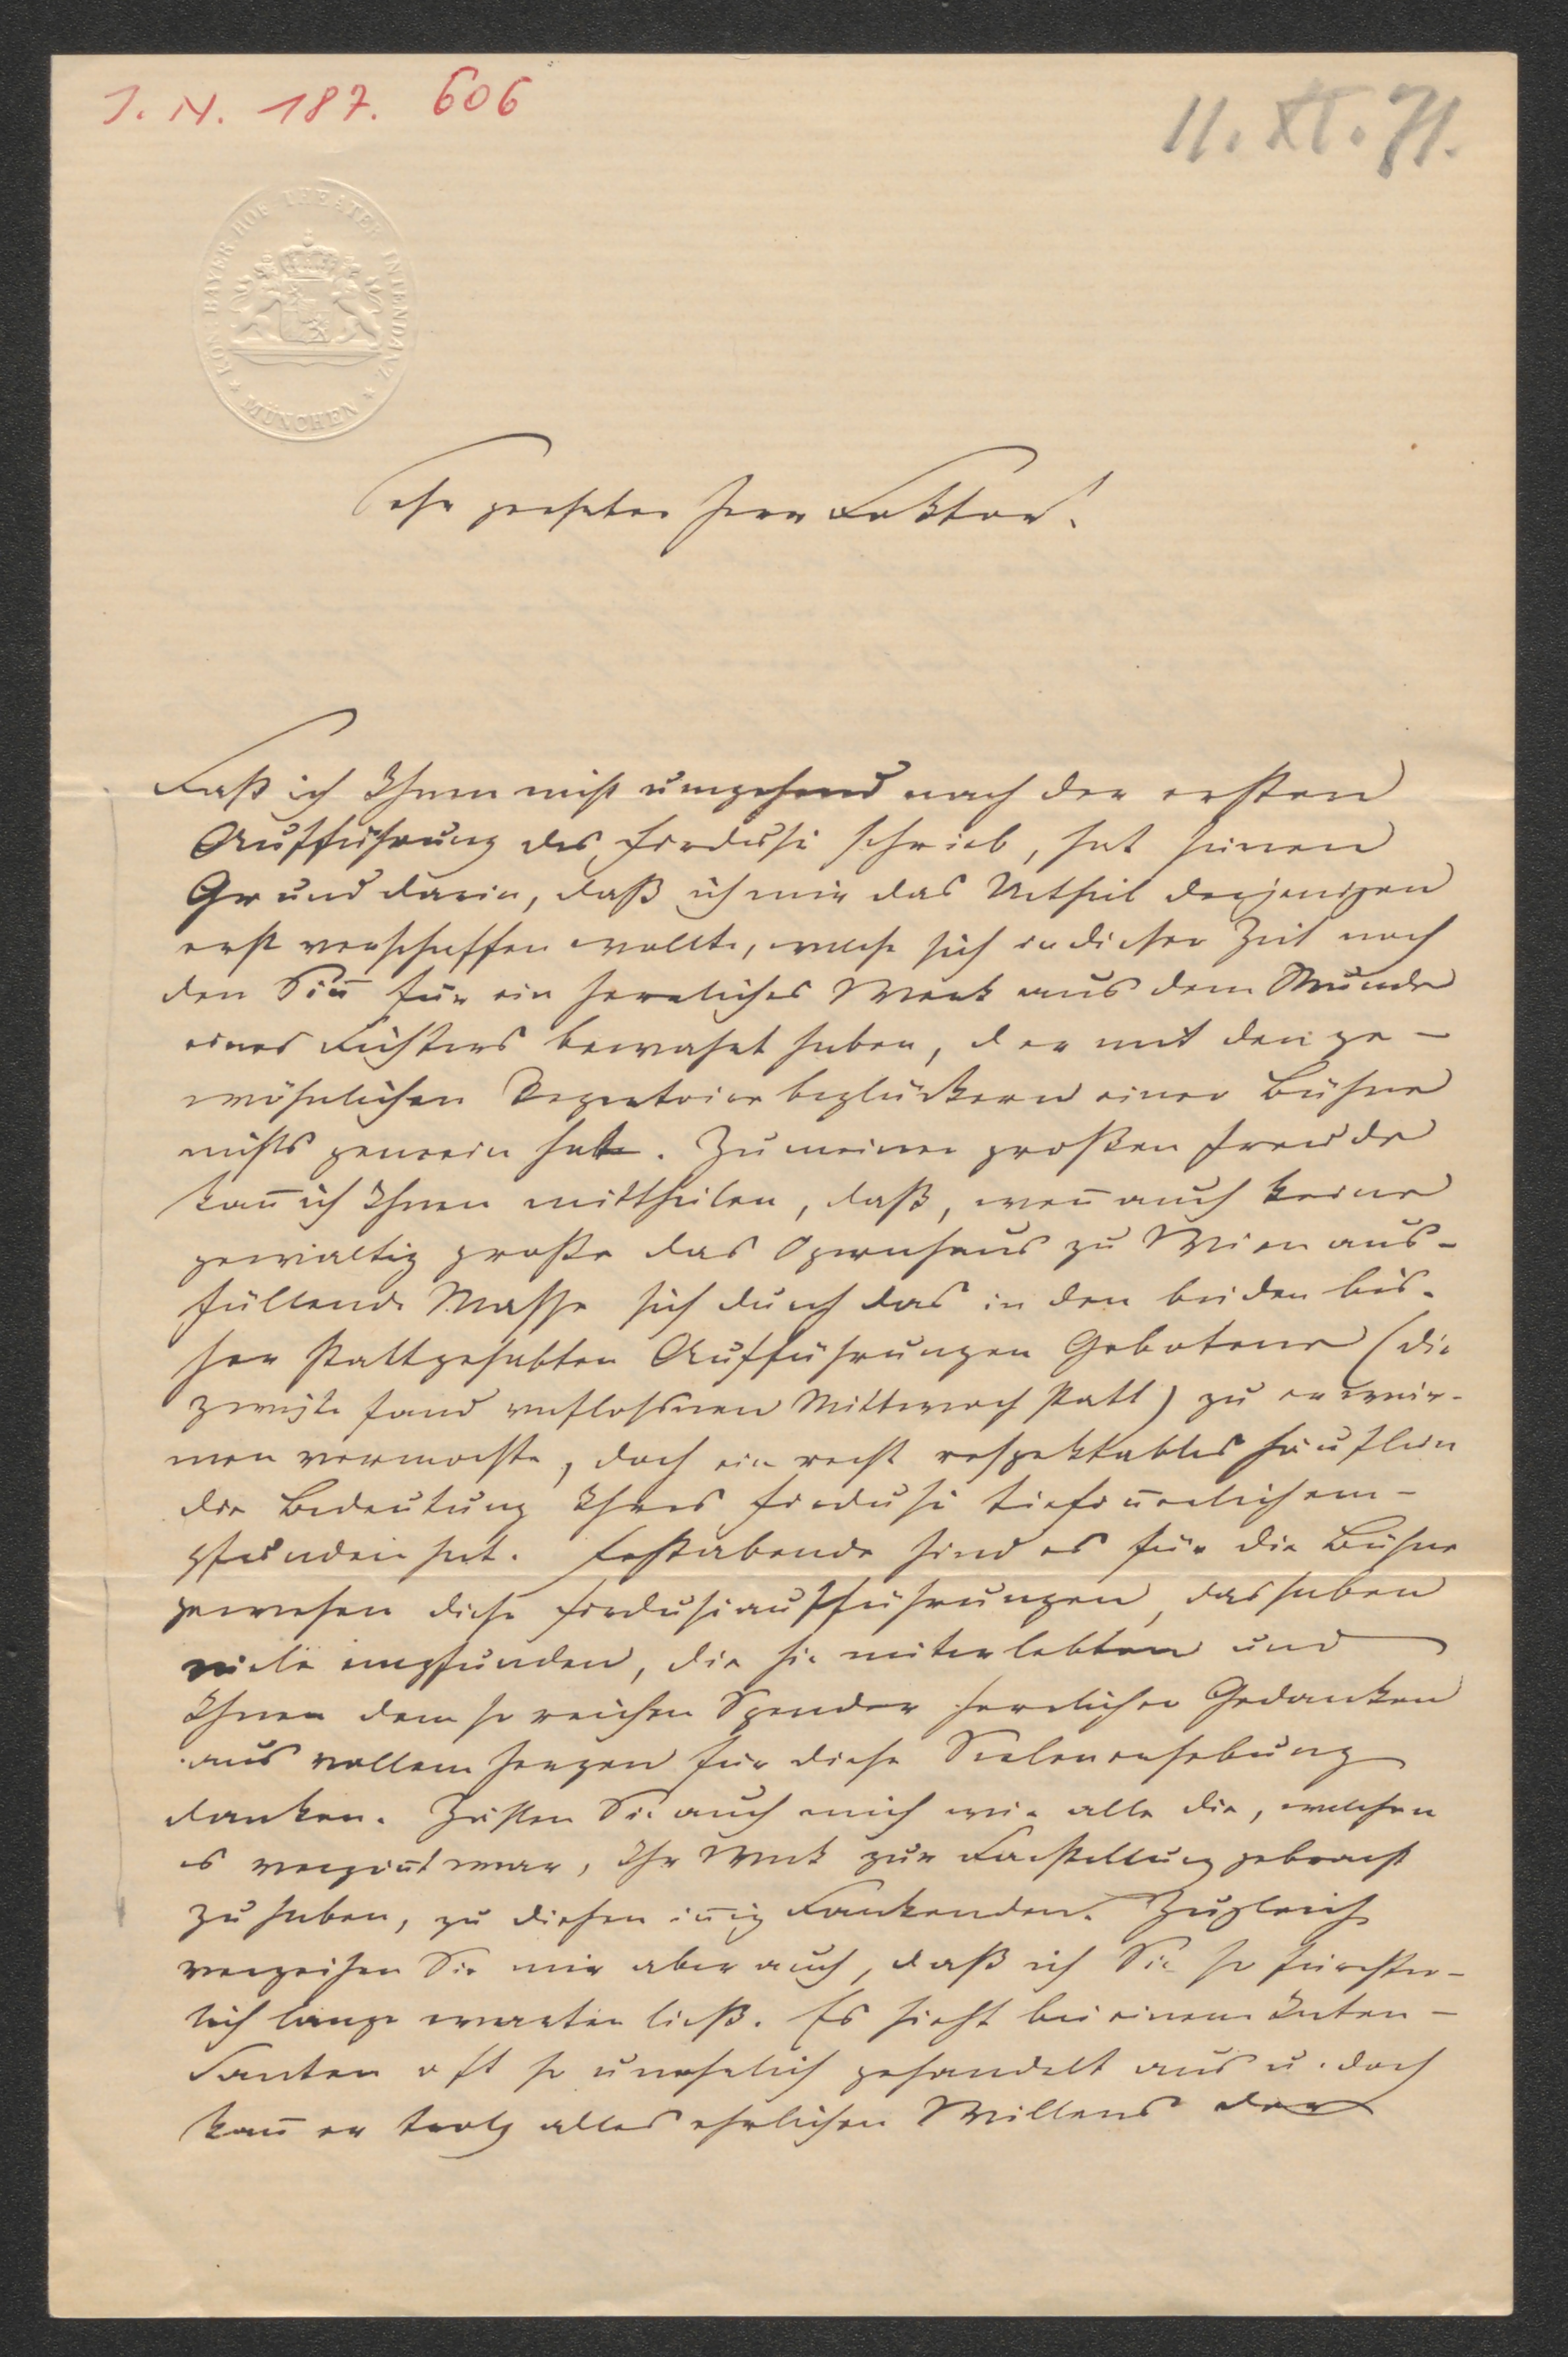 J. N. 187. 606
11. XI. 71.
KÖN. BAYER. HOF-THEATER INTENDANZ
* MÜNCHEN *
Sehr geehrter Herr Doktor!
Daß ich Ihnen nicht umgehend nach der ersten
Aufführung des Firdusi schrieb, hat seinen
Grund darin, daß ich mir das Urtheil derjenigen
erst verschaffen wollte, welche sich in dieser Zeit noch
den Siñ für ein herrliches Werk aus dem Munde
eines Dichters bewahrt haben, der mit den ge-
wöhnlichen Repertoirbeglückern einer Bühne
nichts gemein hat. Zu meiner großen Freude
kañ ich Ihnen mittheilen, daß, weñ auch keine
gewaltig große das Opernhaus zu Wien aus-
füllende Masse sich durch das in den beiden bis-
her stattgehabten Aufführungen Gebotene (die
zweite fand verflossenen Mittwoch statt) zu erwär-
men vermochte, doch ein recht respektables Häuflein
die Bedeutung Ihres Firdusi tiefiñerlich em-
pfunden hat. Festabende sind es für die Bühne
gewesen diese Firdusiaufführungen, das haben
viele empfunden, die sie miterlebten und
Ihnen dem so reichen Spender herrlicher Gedanken
aus vollem Herzen für diese Seelenerhebung
danken. Zählen Sie auch mich wie alle die, welchen
es vergöñt war, Ihr Werk zur Darstellung gebracht
zu haben, zu diesen iñig Dankenden. Zugleich
verzeihen Sie mir aber auch, daß ich Sie so fürchter-
lich lange warten ließ. Es sieht bei einem Inten-
danten oft so unehrlich gehandelt aus u. doch
kañ er trotz alles ehrlichen Willens der